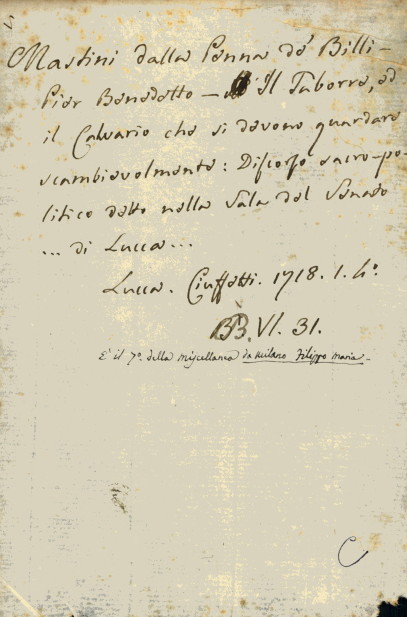 Mastini dalla Penna de' Billi -
Pier Benedetto - Il Taborre, ed
il Calvario che si devono guardare
scambievolmente: Discorso sacro-po-
litico detto nella Sala del Senato
... di Lucca ...
Lucca. Ciuffetti. 1718. 1. 4°.
BB. VI. 31.
E' il 7°. della miscellanea da Milano Filippo Maria -
C